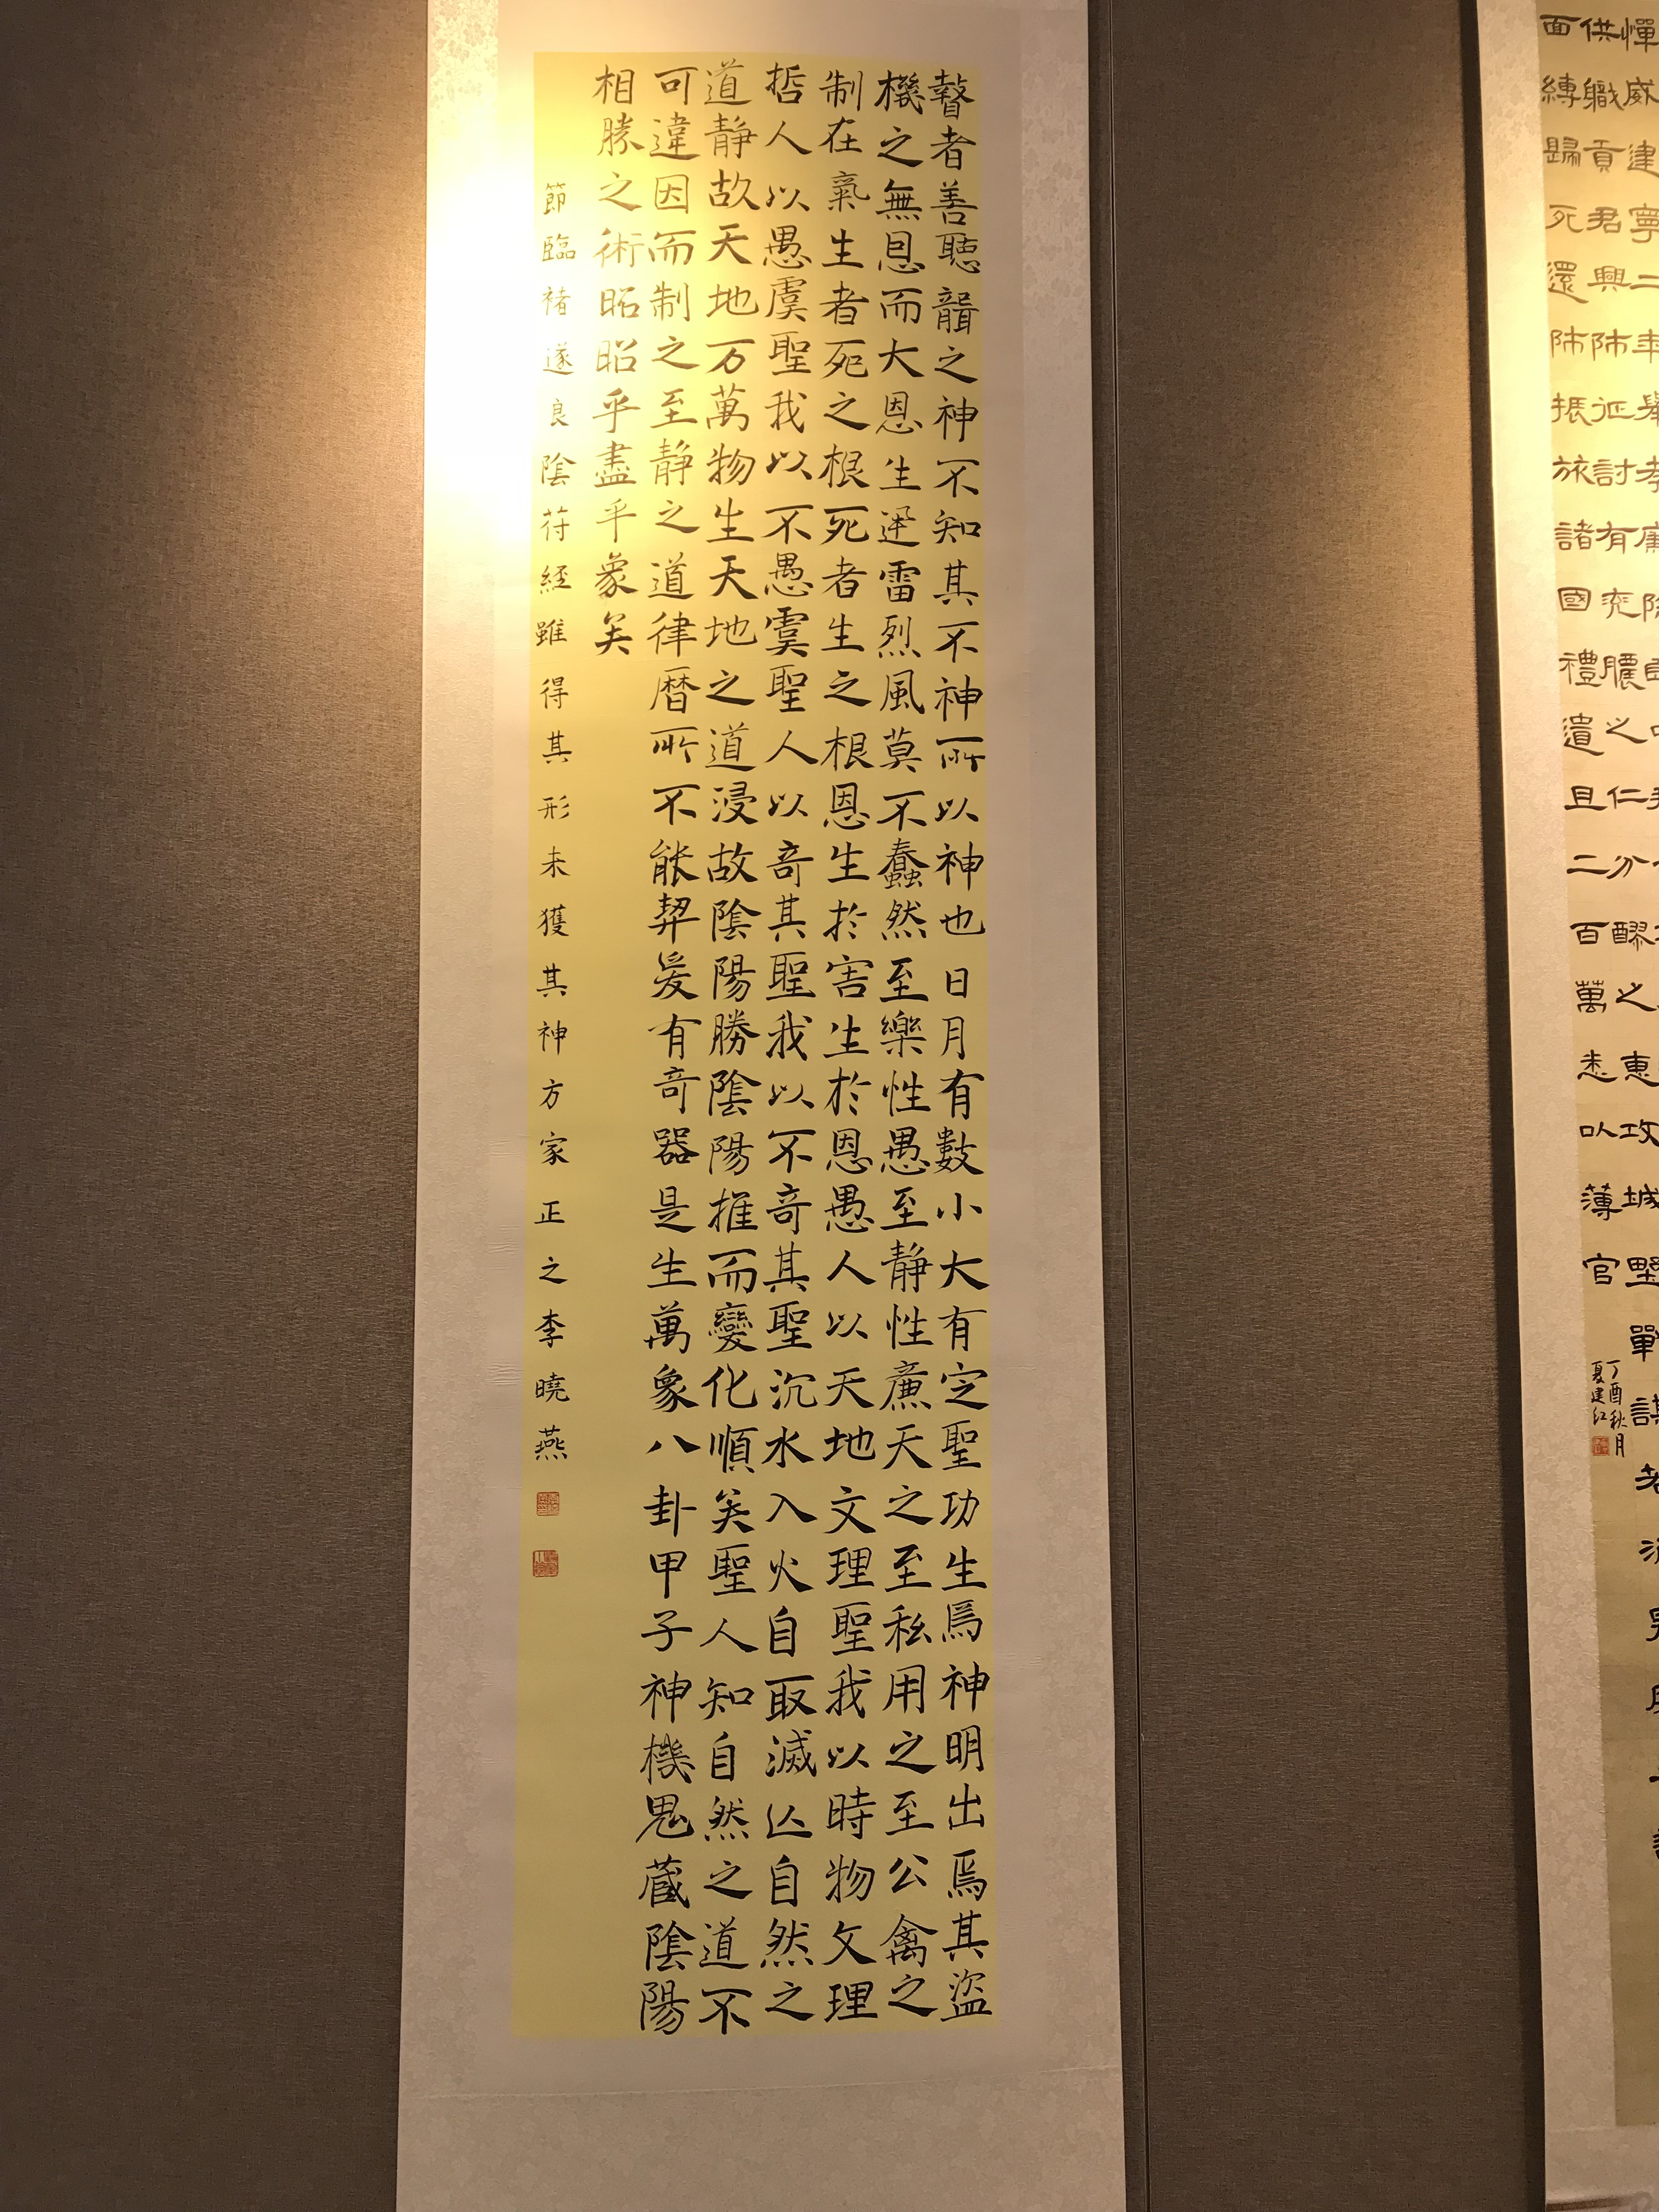 瞽者善聽聾之神不知其不神所以神也日月有數小大有定聖功生焉神明出焉其盜
機之無恩而大恩生迅雷烈風莫不蠢然至樂性愚至靜性廉天之至私用之至公禽之
制在氣生者死之根死者生之根恩生於害生於恩愚人以天地文理聖我以時物文理
哲人以愚虞聖我以不愚虞聖人以奇其聖我以不奇其聖沉水入火自取滅亡自然之
道靜故天地万萬物生天地之道浸故陰陽勝陰陽推而變化順矣聖人知自然之道不
可違因而制之至靜之道律曆所不能契爰有奇器是生萬象八卦甲子神機鬼藏陰陽
相勝之術昭昭乎盡乎象矣
節臨褚遂良陰符經雖得其形未獲其神方家正之李曉燕
憚威建寧二年舉孝廉除
供職貢君興師征討有兗膿之仁分醪之惠攻城野戰謀若
面縛歸死還師振旅諸國禮遺且二百萬悉以薄官
丁酉秋月
夏建紅